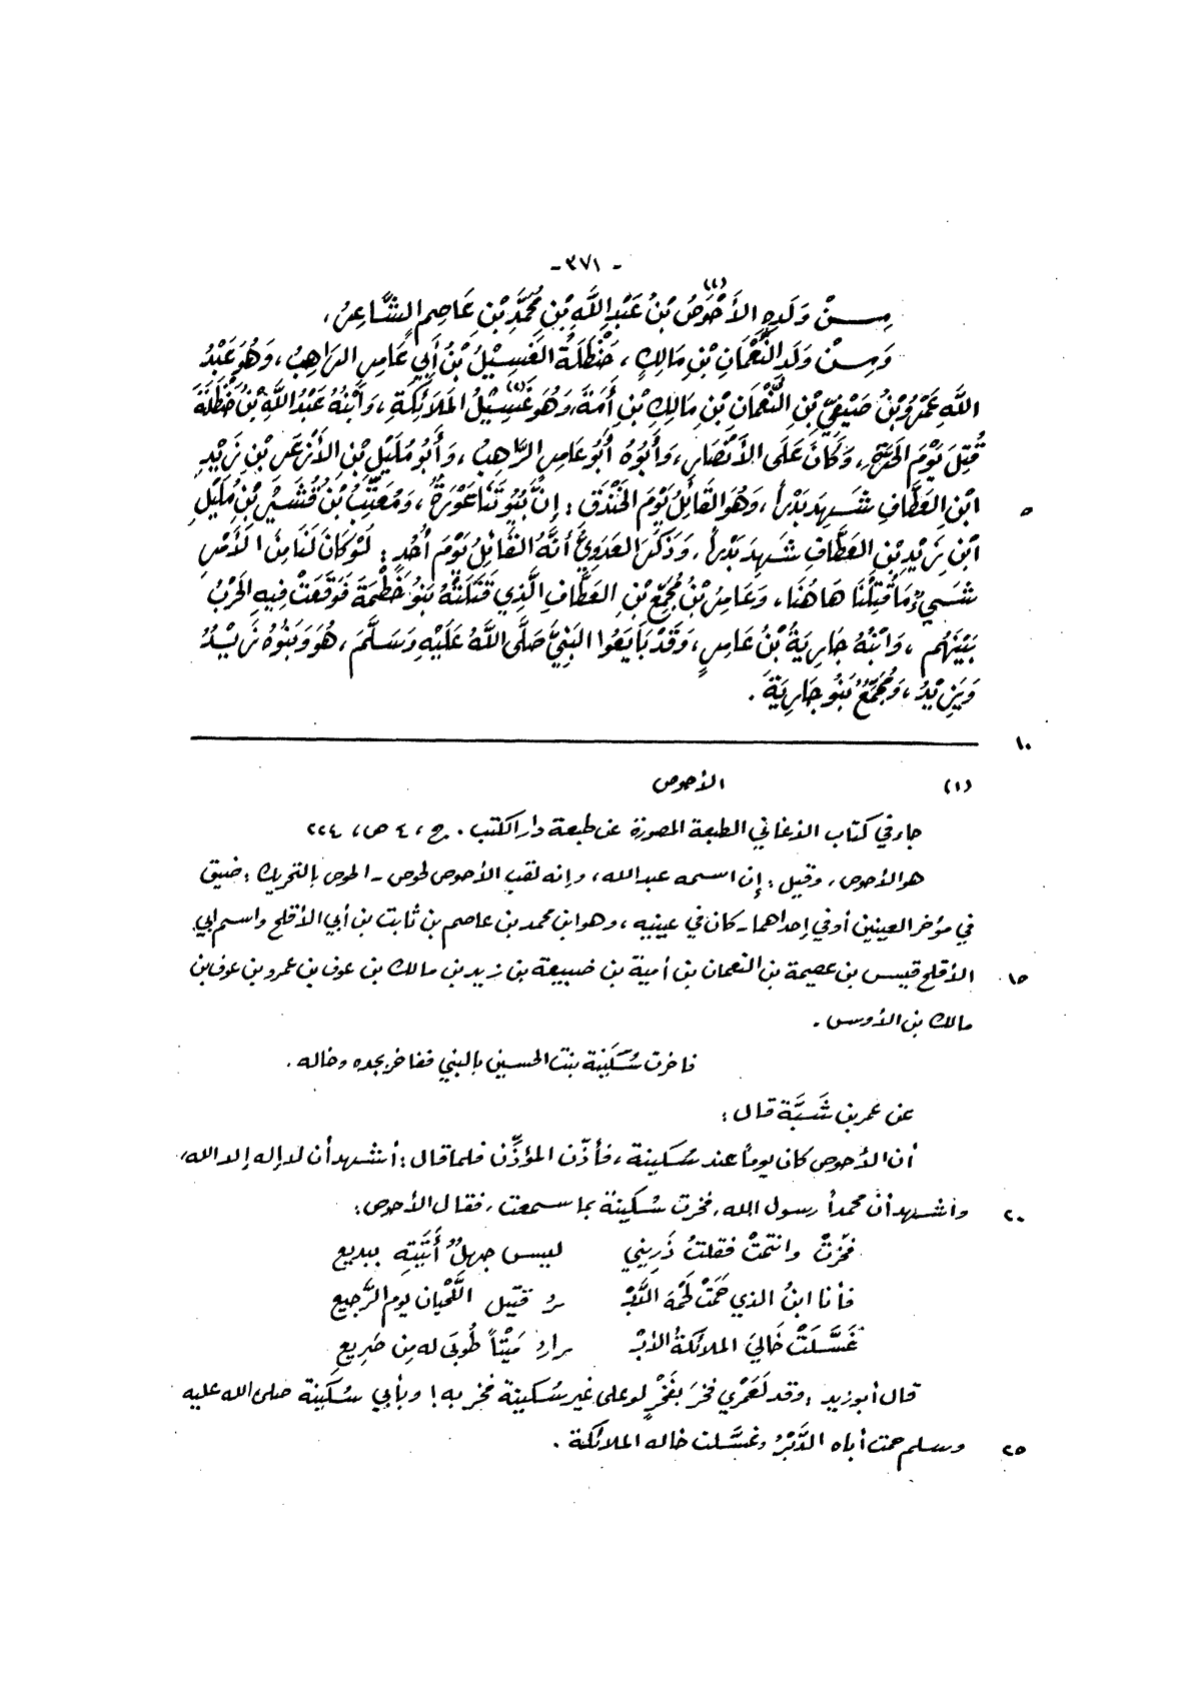 - ٣٧١ -
مِنْ وَلَدِهِ الأَحْوَصُ(١) بْنُ عَبْدِ اللَّهِ بْنِ مُحَمَّدِ بْنِ عَاصِمٍ الشَّاعِرُ،
وَمِنْ وَلَدِ النُّعْمَانِ بْنِ مَالِكٍ، حَنْظَلَةُ الغَسِيْلُ بْنُ أَبِي عَامِرٍ الرَاهِبُ، وَهُوَ عَبْدُ
اللَّهِ عَمْرُو بْنُ صَيْفِيِّ بْنِ النُّعْمَانِ بْنِ مَالِكِ بْنِ أَمَةَ، وَهُوَ غَسِيْلُ(٢) المَلَائِكَةِ، وَابْنُهُ عَبْدُ اللَّهِ بْنُ حَنْظَلَةَ
قُتِلَ يَوْمَ الحَرَّةِ، وَكَانَ عَلَى الأَنْصَارِ، وَأَبُوهُ أَبُو عَامِرٍ الرَّاهِبُ، وَأَبُو مُلَيْلِ بْنِ الأَزْعَرِ بْنِ زَيْدِ
ابْنِ العَطَّافِ شَهِدَ بَدْرَاً، وَهُوَ القَائِلُ يَوْمَ الخَنْدَقِ: إِنَّ بُيُوتَنَا عَوْرَةٌ، وَمُعَتِّبُ بْنُ قُشَيْرِ بْنِ مُلَيْلِ
٥
ابْنِ زَيْدِ بْنِ العَطَّافِ شَهِدَ بَدْرَاً، وَذَكَرَ العَدَوِيُّ أَنَّهُ القَائِلُ يَوْمَ أُحُدٍ: لَوْ كَانَ لَنَا مِنَ الأَمْرِ
شَيْءٌ مَا قُتِلْنَا هَاهُنَا، وَعَامِرُ بْنُ مُجَمِّعِ بْنِ العَطَّافِ الَّذِي قَتَلَتْهُ بَنُو خَطْمَةَ فَوَقَعَتْ فِيهِ الحَرْبُ
بَيْنَهُم، وَابْنُهُ جَارِيَةُ بْنُ عَامِرٍ، وَقَدْ بَايَعُوا النَبِيَّ صَلَّى اللَّهُ عَلَيْهِ وَسَلَّمَ، هُوَ وَبَنُوهُ زَيْدُ
وَيَزِيْدُ، وَمُجَمِّعُ بَنُو جَارِيَةَ.
١٠
(١) الأحوص
جاء في كتاب الأغاني الطبعة المصورة عن طبعة دار الكتب. ج، ٤ ص، ٢٢٤
هو الأحوص، وقيل: إن اسمه عبد الله، وإنه لقب الأحوص لحوص - الحوص بالتحريك: ضيق
في مؤخر العينين أو في إحداهما - كان في عينيه، وهو ابن محمد بن عاصم بن ثابت بن أبي الأقلح واسم أبي
الأقلح قيس بن عصيمة بن النعمان بن أمية بن ضبيعة بن زيد بن مالك بن عوف بن عمرو بن عوف بن
١٥
مالك بن الأوس.
فاخرت سُكَينة بنت الحسين بالنبي ففاخر بجده وخاله.
عن عمر بن شَبَّة قال:
أن الأحوص كان يوماً عند سُكينة، فأذّن المؤذِّن فلما قال: أشهد أن لا إله إلا الله،
واشهد أن محمداً رسول الله، فخرت سُكينة بما سمعت، فقال الأحوص:
٢٠
فخَرَتْ وانتمتْ فقلتُ ذَرِيني ليس جهلٌ أتَيتِه ببديع
فأنا ابنُ الذي حَمَتْ لَحْمَه الدَّبْ رُ قتيل اللِّحْيان يوم الرَّجيع
غَسَّلَتْ خَاليَ الملائكةُ الأبْ رارُ مَيْتاً طُوبَى له مِن صَرِيعِ
قال أبو زيد: وقد لَعَمْري فخَرَ بفَخْرٍ لو على غير سُكينة فخر به! وبأبي سُكَينة صلى الله عليه
وسلم حمت أباه الدَّبْرُ وغسَّلت خاله الملائكة.
٢٥